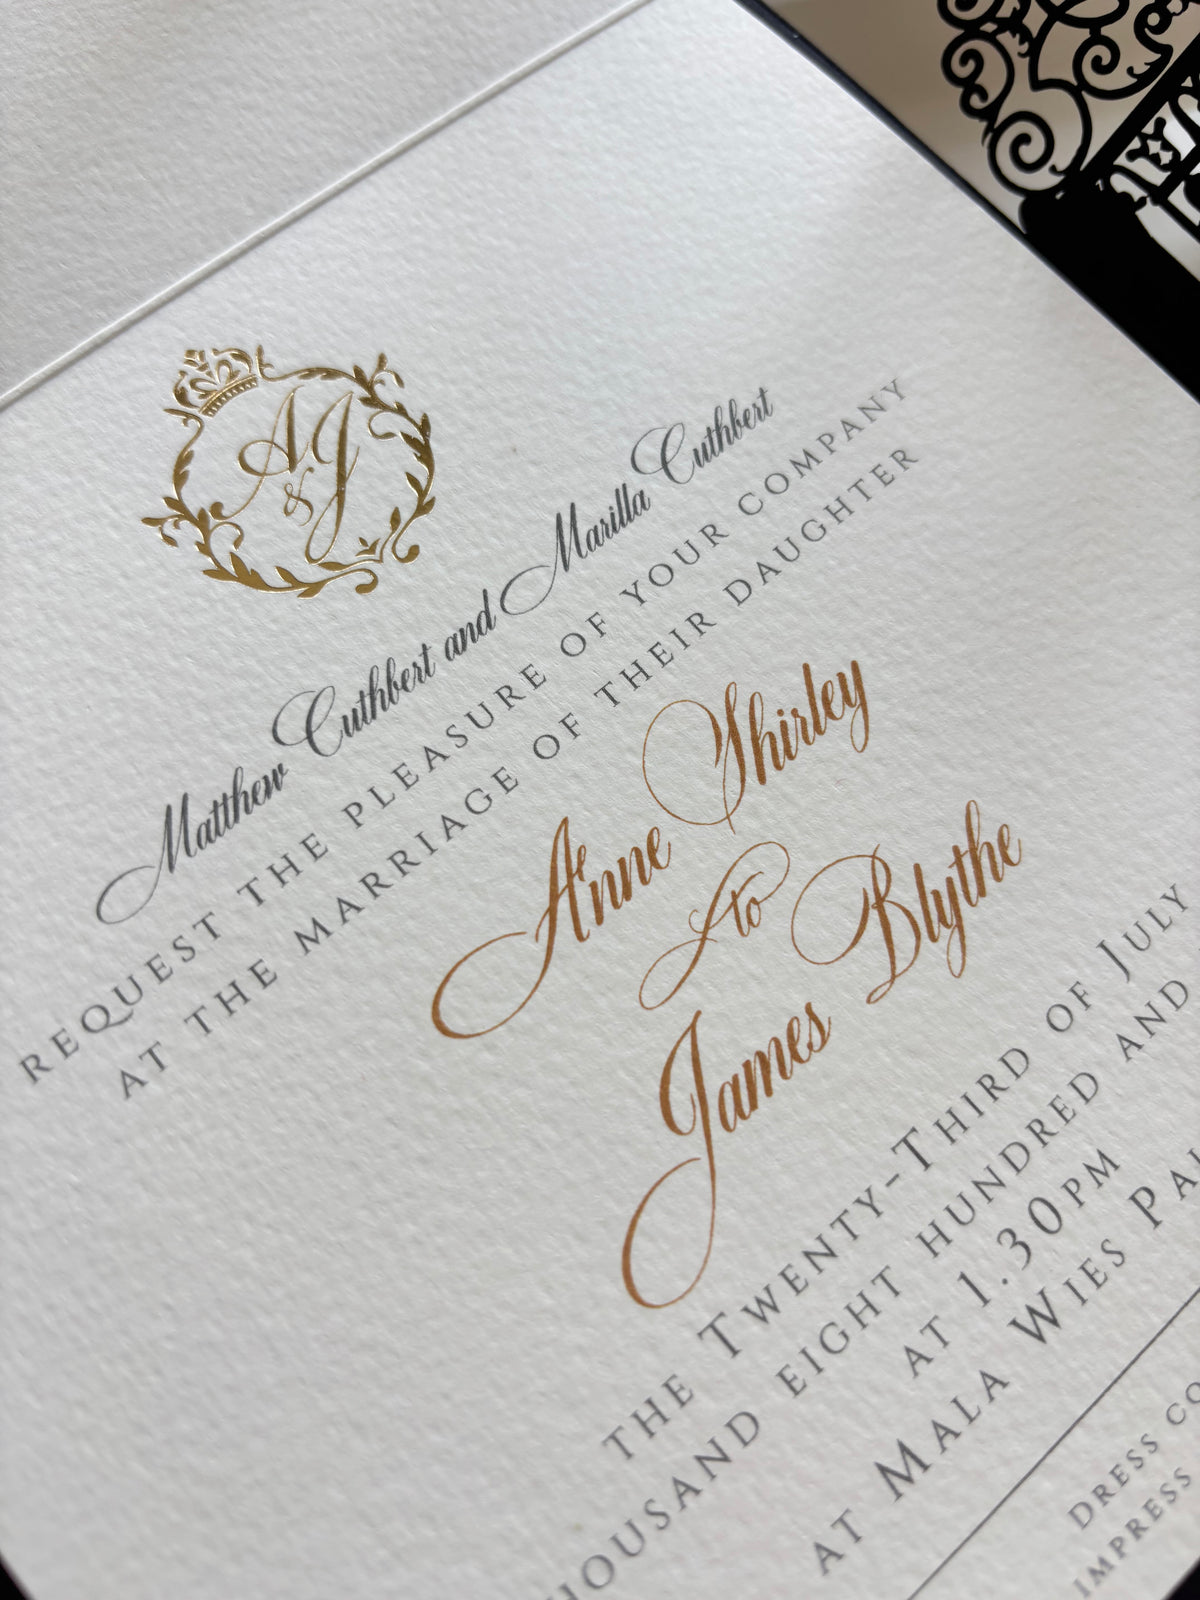 A
&
J
Matthew Cuthbert and Marilla Cuthbert
REQUEST THE PLEASURE OF YOUR COMPANY
AT THE MARRIAGE OF THEIR DAUGHTER
Anne Shirley
to
James Blythe
THE TWENTY-THIRD OF JULY
HOUSAND EIGHT HUNDRED AND
AT 1.30PM
AT MALA WIES PA
DRESS CO
IMPRESS